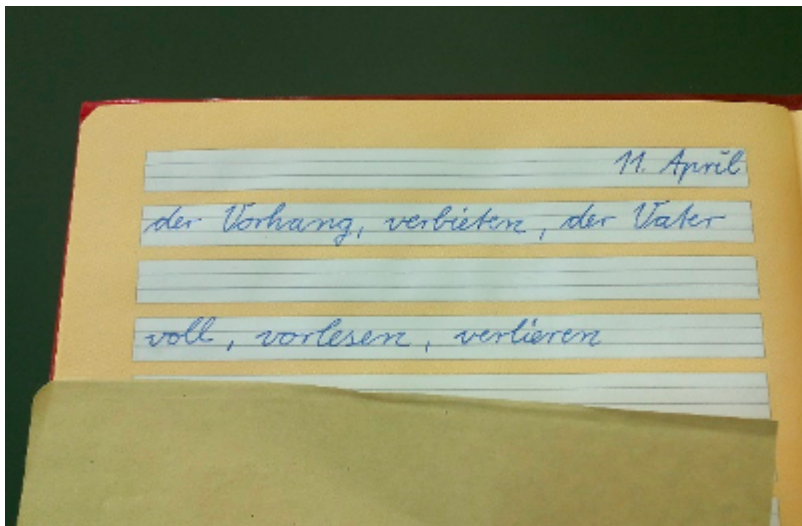 11. April
der Vorhang, verbieten, der Vater
voll, vorlesen, verlieren